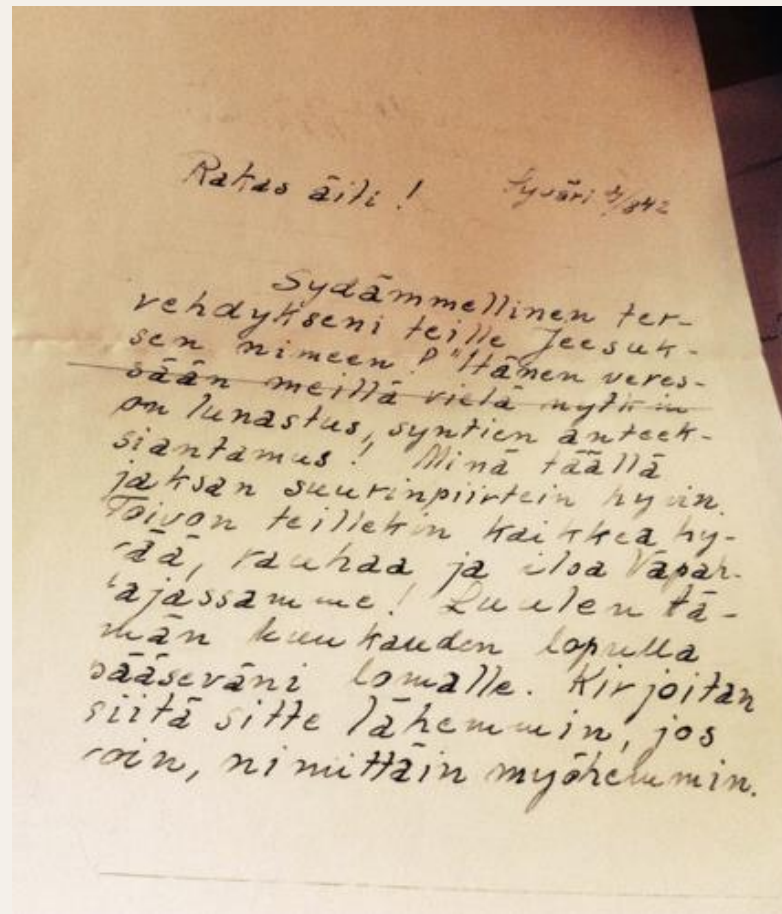 Rakas äiti! Syväri 4/842
Sydämmellinen ter-
vehdykseni teille Jeesuk-
sen nimeen! "Hänen veres-
sään meillä vielä nytkin
on lunastus, syntien anteek-
siantamus! Minä täällä
jaksan suurinpiirtein hyvin.
Toivon teillekin kaikkea hy-
vää, rauhaa ja iloa Vapah-
tajassamme! Luulen tä-
män kuukauden lopulla
pääseväni lomalle. Kirjoitan
siitä sitte lähemmin, jos
voin, nimittäin myöhemmin.